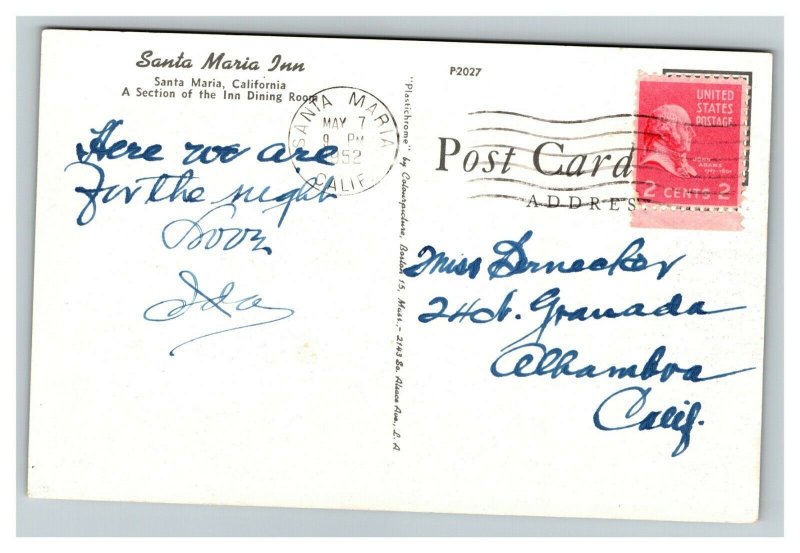 Santa Maria Inn
Santa Maria, California
A Section of the Inn Dining Room
P2027
SANTA MARIA
MAY 7
9 PM
1952
CALIF.
UNITED
STATES
POSTAGE
JOHN
ADAMS
1797-1801
2 CENTS 2
Post Card
ADDRES
Here we are
for the night
Love
Ida
"Plastichrome" by Colourpicture, Boston 15, Mass., - 2143 So. Ave., L.A
Miss Bernecker
24 N. Granada
Alhambra
Calif.